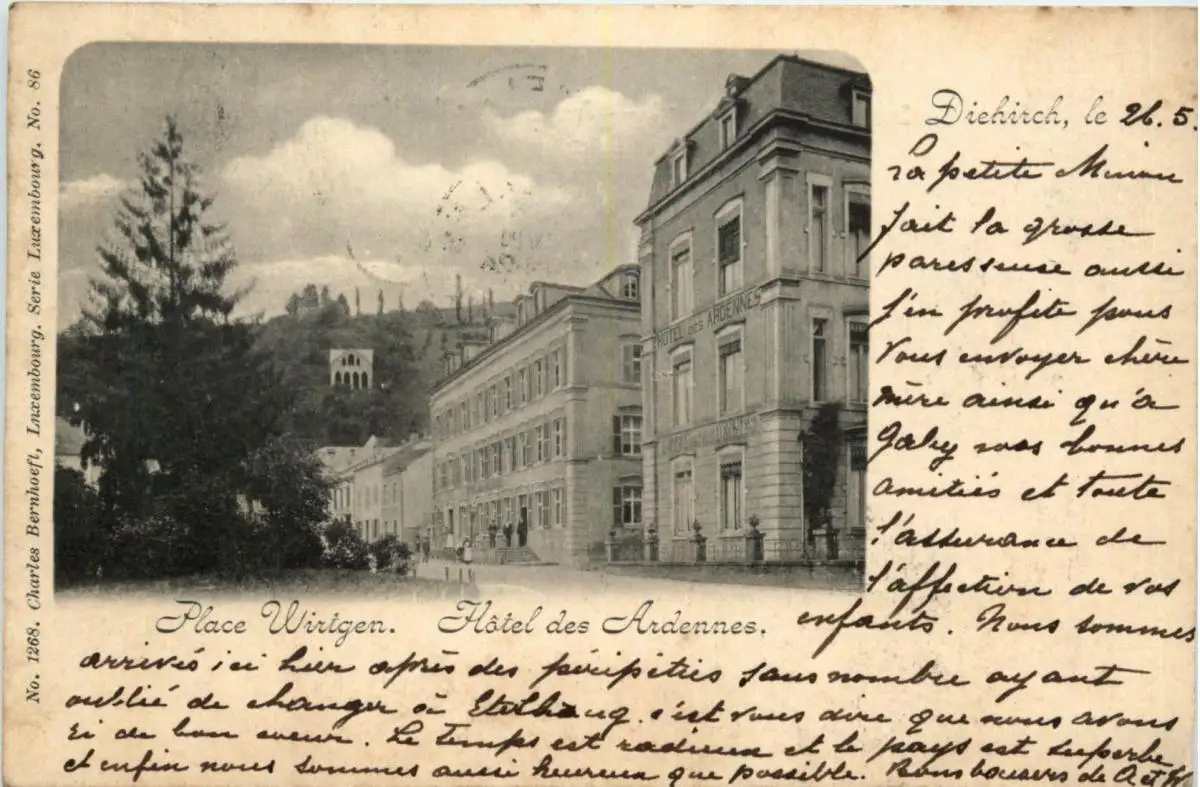 No. 1268. Charles Bernhoeft, Luxembourg. Serie Luxembourg. No. 86
HÔTEL DES ARDENNES
Diekirch, le 26.5.
La petite Mimi
fait la grosse
paresseuse aussi
j'en profite pour
vous envoyer chère
mère ainsi qu'à
Gaby nos bonnes
amitiés et toute
l'assurance de
l'affection de vos
enfants. Nous sommes
Place Wirtgen. Hôtel des Ardennes.
arrivés ici hier après des péripéties sans nombre ayant
oublié de changer à c'est vous dire que nous avons
ri de bon coeur. Le temps est radieux et le pays est superbe
et enfin nous sommes aussi heureux que possible. Bons baisers de A et